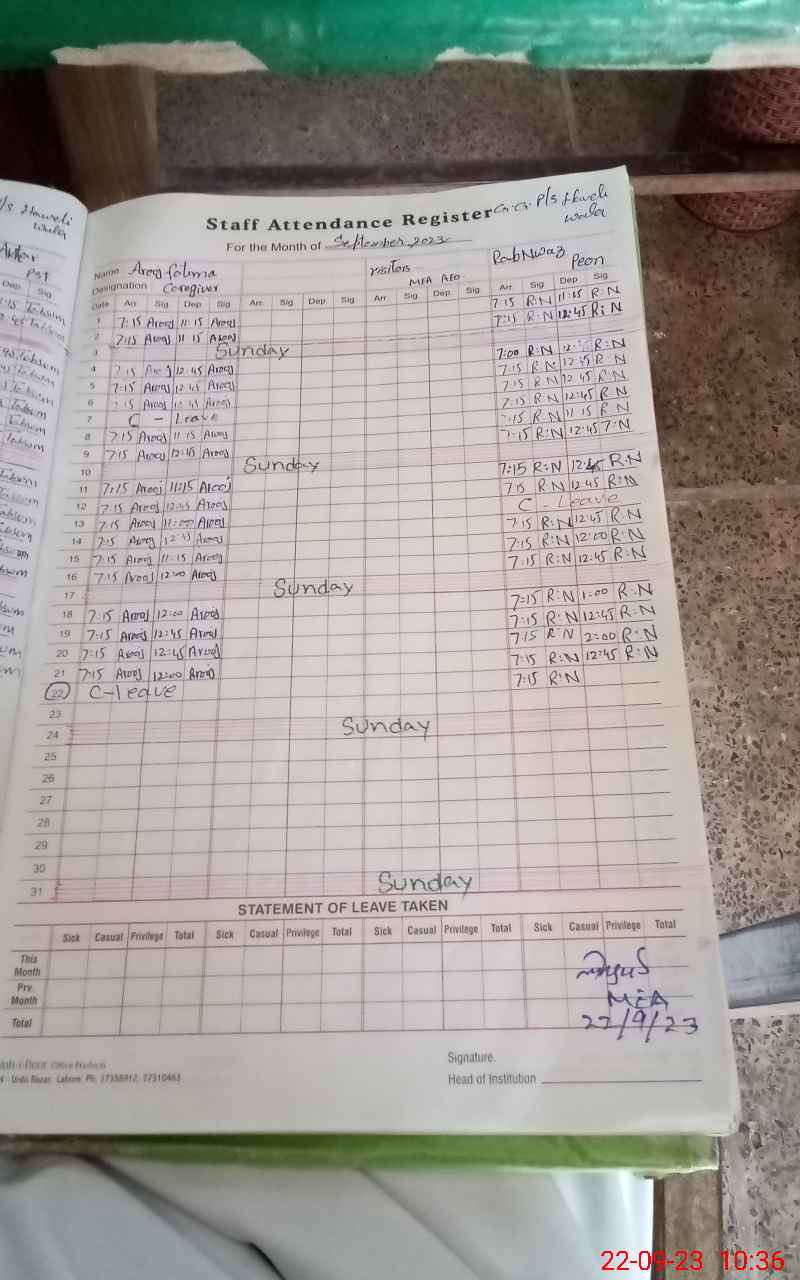 Staff Attendance Register G.G. P/S Haveli wala
For the Month of September 2023
Name Arooj fatima Visitors RabNwaz
Designation Caregiver MEA AEO Peon
Date Arr Sig Dep Sig Arr Sig Dep Sig Arr Sig Dep Sig Arr Sig Dep Sig
1 7:15 Arooj 11:15 Arooj 7:15 R:N 11:15 R:N
2 7:15 Arooj 11:15 Arooj 7:15 R:N 12:45 R:N
3 Sunday
4 7:15 Arooj 12:45 Arooj 7:00 R:N R:N
5 7:15 Arooj 12:45 Arooj 7:15 R:N 12:45 R:N
6 7:15 Arooj 12:45 Arooj 7:15 R:N 12:45 R:N
7 C - Leave 7:15 R:N 12:45 R:N
8 7:15 Arooj 11:15 Arooj 7:15 R:N 11:15 R:N
9 7:15 Arooj 12:45 Arooj 7:15 R:N 12:45 7:N
10 Sunday
11 7:15 Arooj 11:15 Arooj 7:15 R:N 12:45 R:N
12 7:15 Arooj 12:45 Arooj 7:15 R:N 12:45 R:N
13 7:15 Arooj 11:00 Arooj C - Leave
14 7:15 Arooj 12:45 Arooj 7:15 R:N 12:45 R:N
15 7:15 Arooj 11:15 Arooj 7:15 R:N 12:00 R:N
16 7:15 Arooj 12:00 Arooj 7:15 R:N 12:45 R:N
17 Sunday
18 7:15 Arooj 12:00 Arooj 7:15 R:N 1:00 R:N
19 7:15 Arooj 12:45 Arooj 7:15 R:N 12:45 R:N
20 7:15 Arooj 12:45 Arooj 7:15 R:N 2:00 R:N
21 7:15 Arooj 12:00 Arooj 7:15 R:N 12:45 R:N
22 C-leave 7:15 R:N
23
24 Sunday
25
26
27
28
29
30
31 Sunday
STATEMENT OF LEAVE TAKEN
Sick Casual Privilege Total Sick Casual Privilege Total Sick Casual Privilege Total Sick Casual Privilege Total
This Month
Pre. Month MEA
Total 22/9/23
Office Products
Urdu Bazar Lahore Ph: 37358912 37310463
Signature.
Head of Institution
22-09-23 10:36